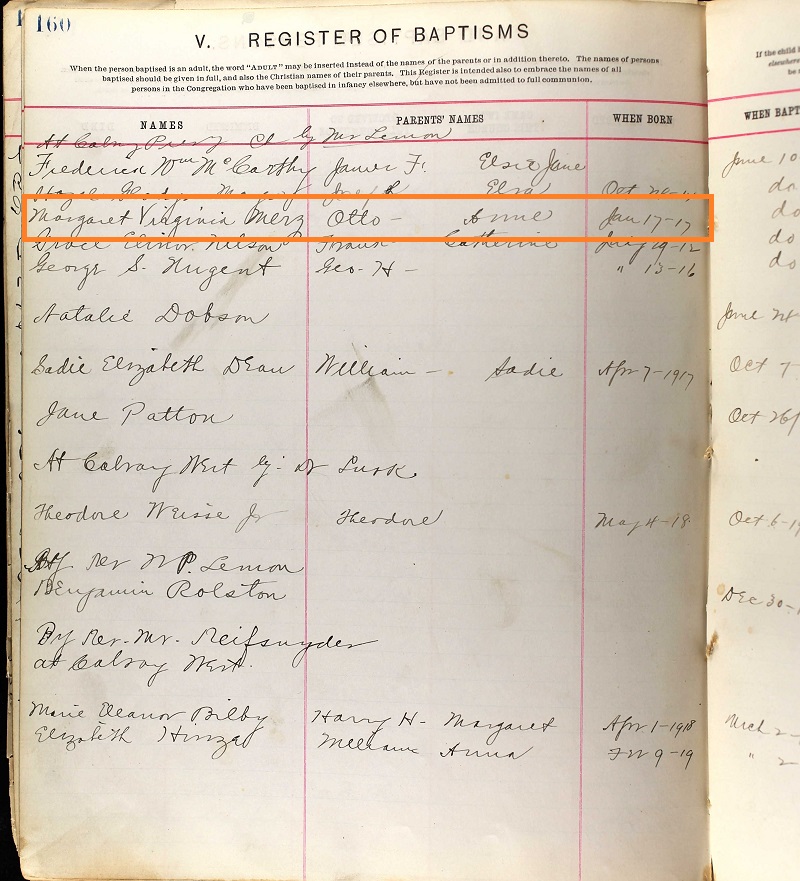 160
V. REGISTER OF BAPTISMS
When the person baptised is an adult, the word "ADULT" may be inserted instead of the names of the parents or in addition thereto. The names of persons
baptised should be given in full, and also the Christian names of their parents. This Register is intended also to embrace the names of all
persons in the Congregation who have been baptised in infancy elsewhere, but have not been admitted to full communion.
If the child
elsewhere
be
NAMES PARENTS' NAMES WHEN BORN WHEN BAPT
At Calvary Ch by Mr Lemon
Frederick Wm McCarthy James F. Elsie Jane June 10
Joseph Elva Oct do
Margaret Virginia Merz Otto - Anne Jan 17-17 do
Grace Elinor Nelson Frank Catherine 19-12 do
George S. Nugent Geo. H - " 13-16 do
Natalie Dobson June 24
Sadie Elizabeth Dean William - Sadie Apr 7-1917 Oct 7
Jane Patton Oct 26
At Calvary West by Dr Lusk
Theodore Weisse Jr Theodore May 4-18 Oct 6-19
By Rev W P. Lemon
Benjamin Rolston Dec 30-
By Rev. Mr. Reifsnyder
at Calvary West.
Marie Eleanor Bilby Harry H - Margaret Apr 1-1918 Mch 2-
Elizabeth William Anna 9-19 " 2